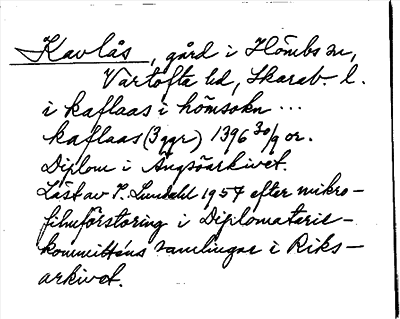 Kavlås, gård i Hömbs sn,
Vartofta hd, Skarab. l.
i kaflaas i hömsokn ...
kaflaas (3 ggr) 1396 30/9 or.
Diplom i Ängsöarkivet.
Läst av I. Lundahl 1957 efter mikro-
filmförstoring i Diplomatarie-
kommitténs samlingar i Riks-
arkivet.